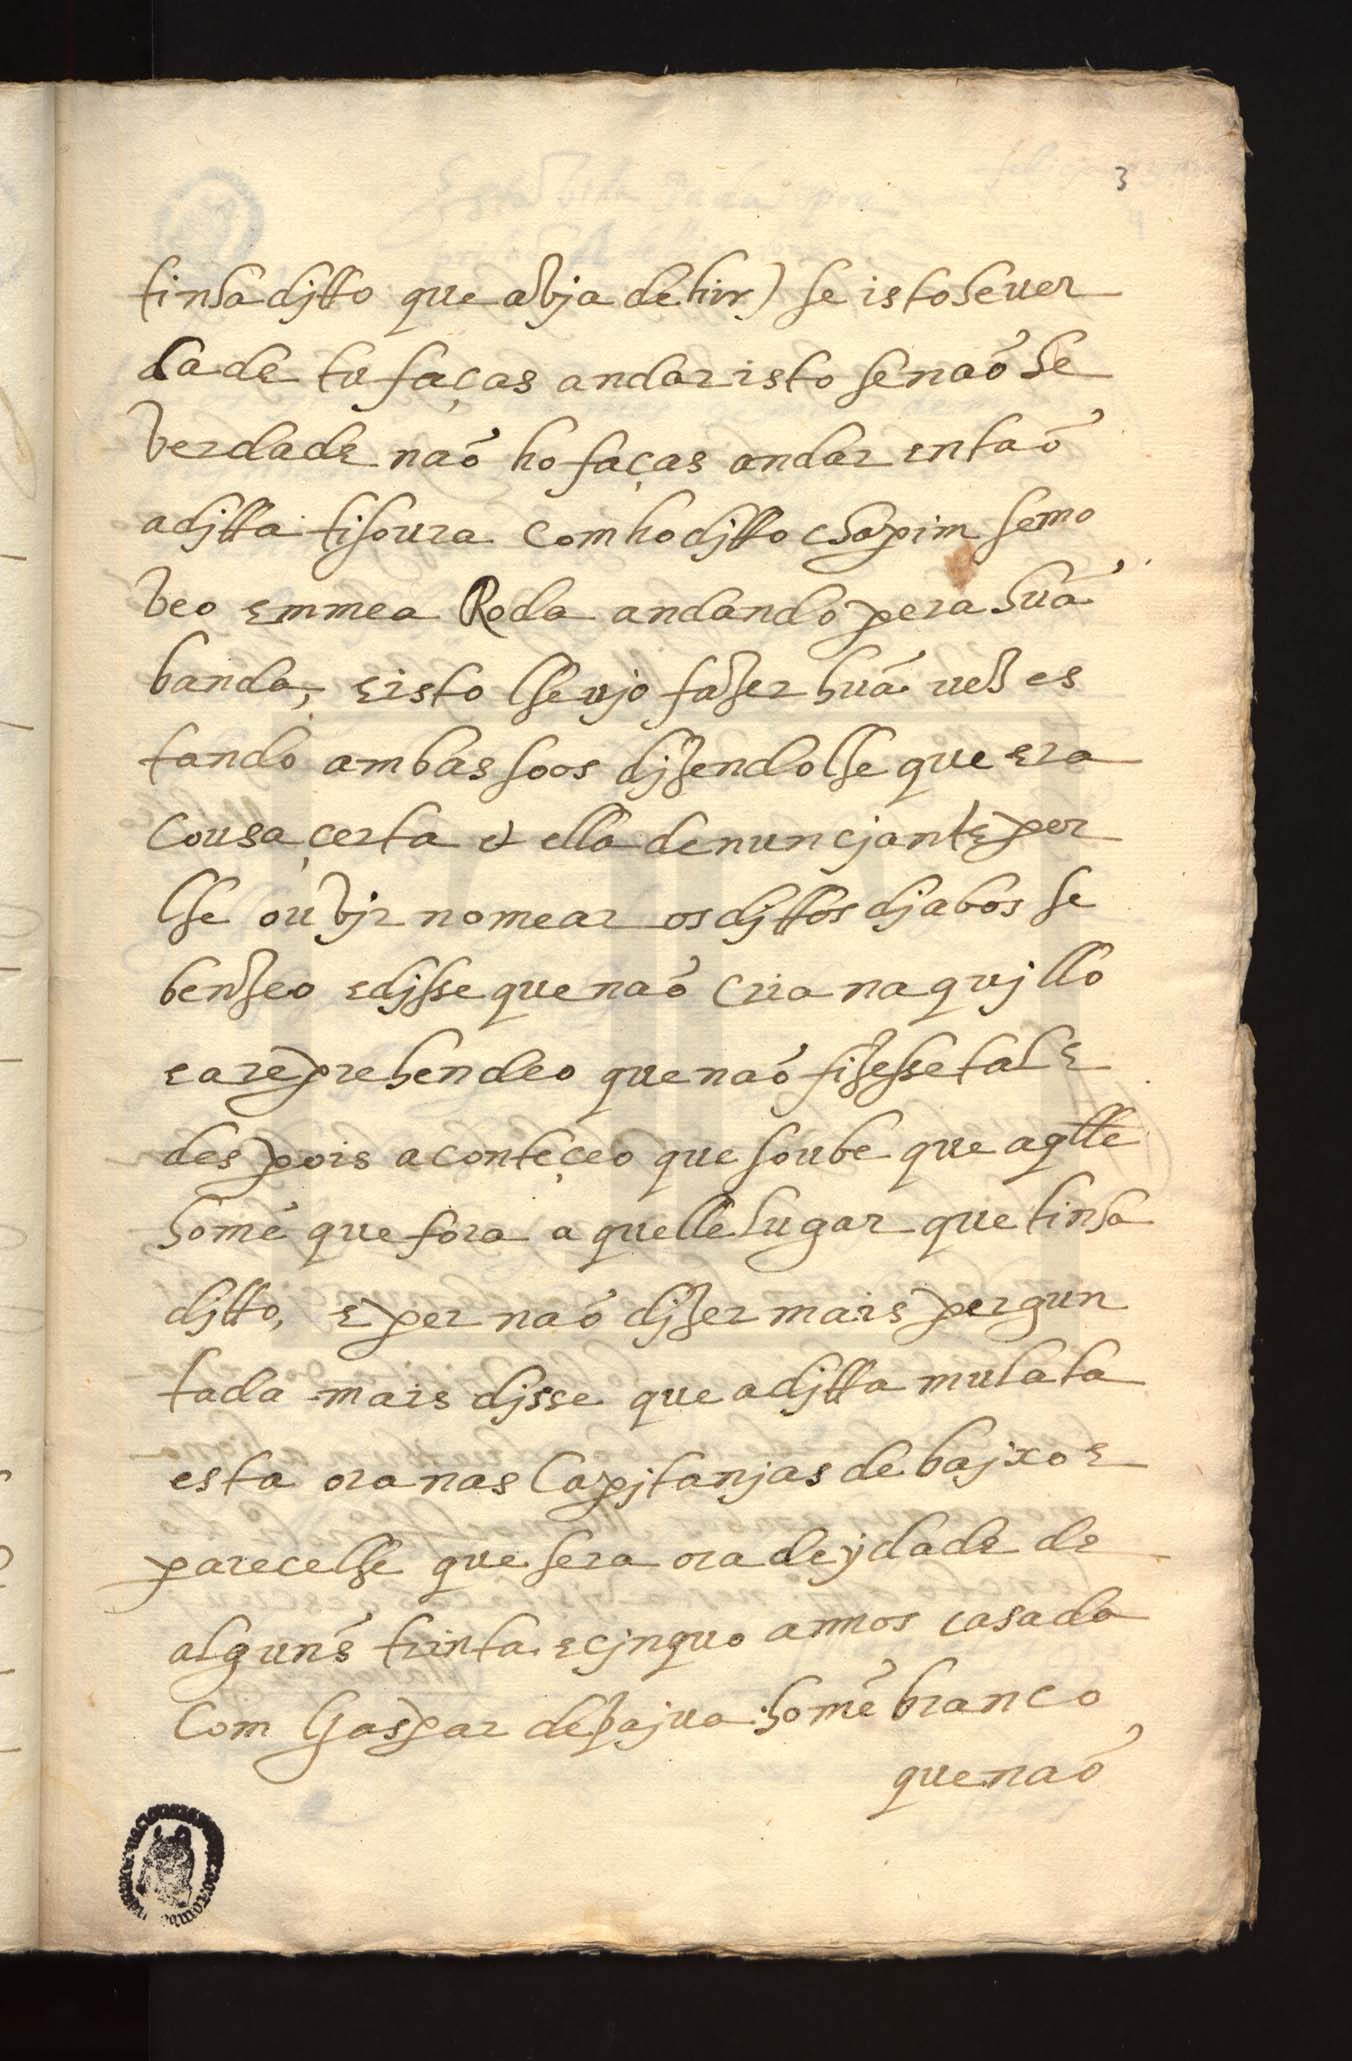 3
tinha djtto que avja de hir) se isto he ver
dade tu faças andar isto se não he
verdade não ho faças andar então
a djtta tisoura com ho djtto chapim se mo
veo em mea Roda andando pera huã
banda, e isto lhe vjo fazer huã vez es
tando ambas soos djzendolhe que era
cousa çerta & ella denuncjante per
lhe ouvjr nomear os djttos djabos se
benzeo e djsse que não cria naqujllo
e a reprehendeo que não fizesse tal e
despois aconteçeo que soube que aqlle
homẽ que fora a quelle lugar que tinha
djtto, e per não djzer mais pergun
tada mais djsse que a djtta mulata
esta ora nas Capjtanjas de bajxo e
parecelhe que sera ora de ydade de
alguns trinta e cjnquo annos casada
Com Gaspar de pajva homẽ branco
que não